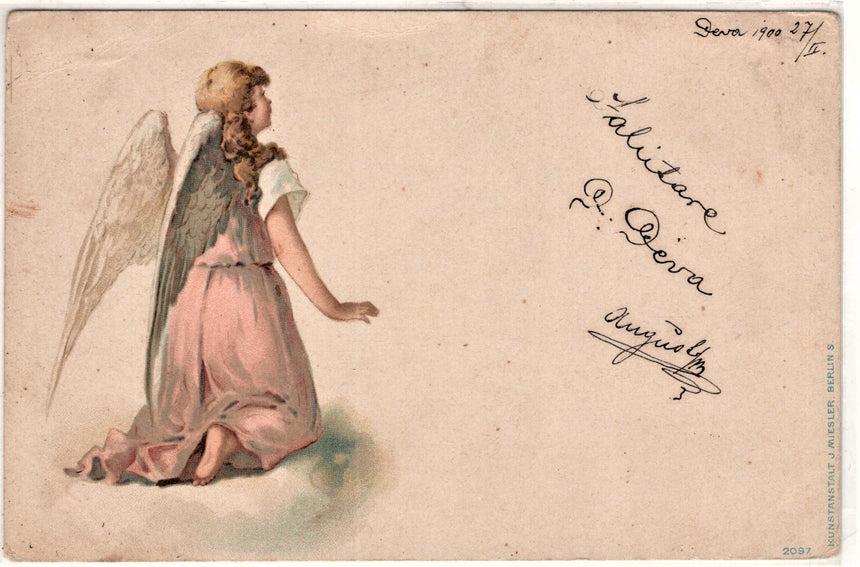 Deva 1900 27/II.
Salutare
D. Deva
August
2097
KUNSTANSTALT J MIESLER. BERLIN S.